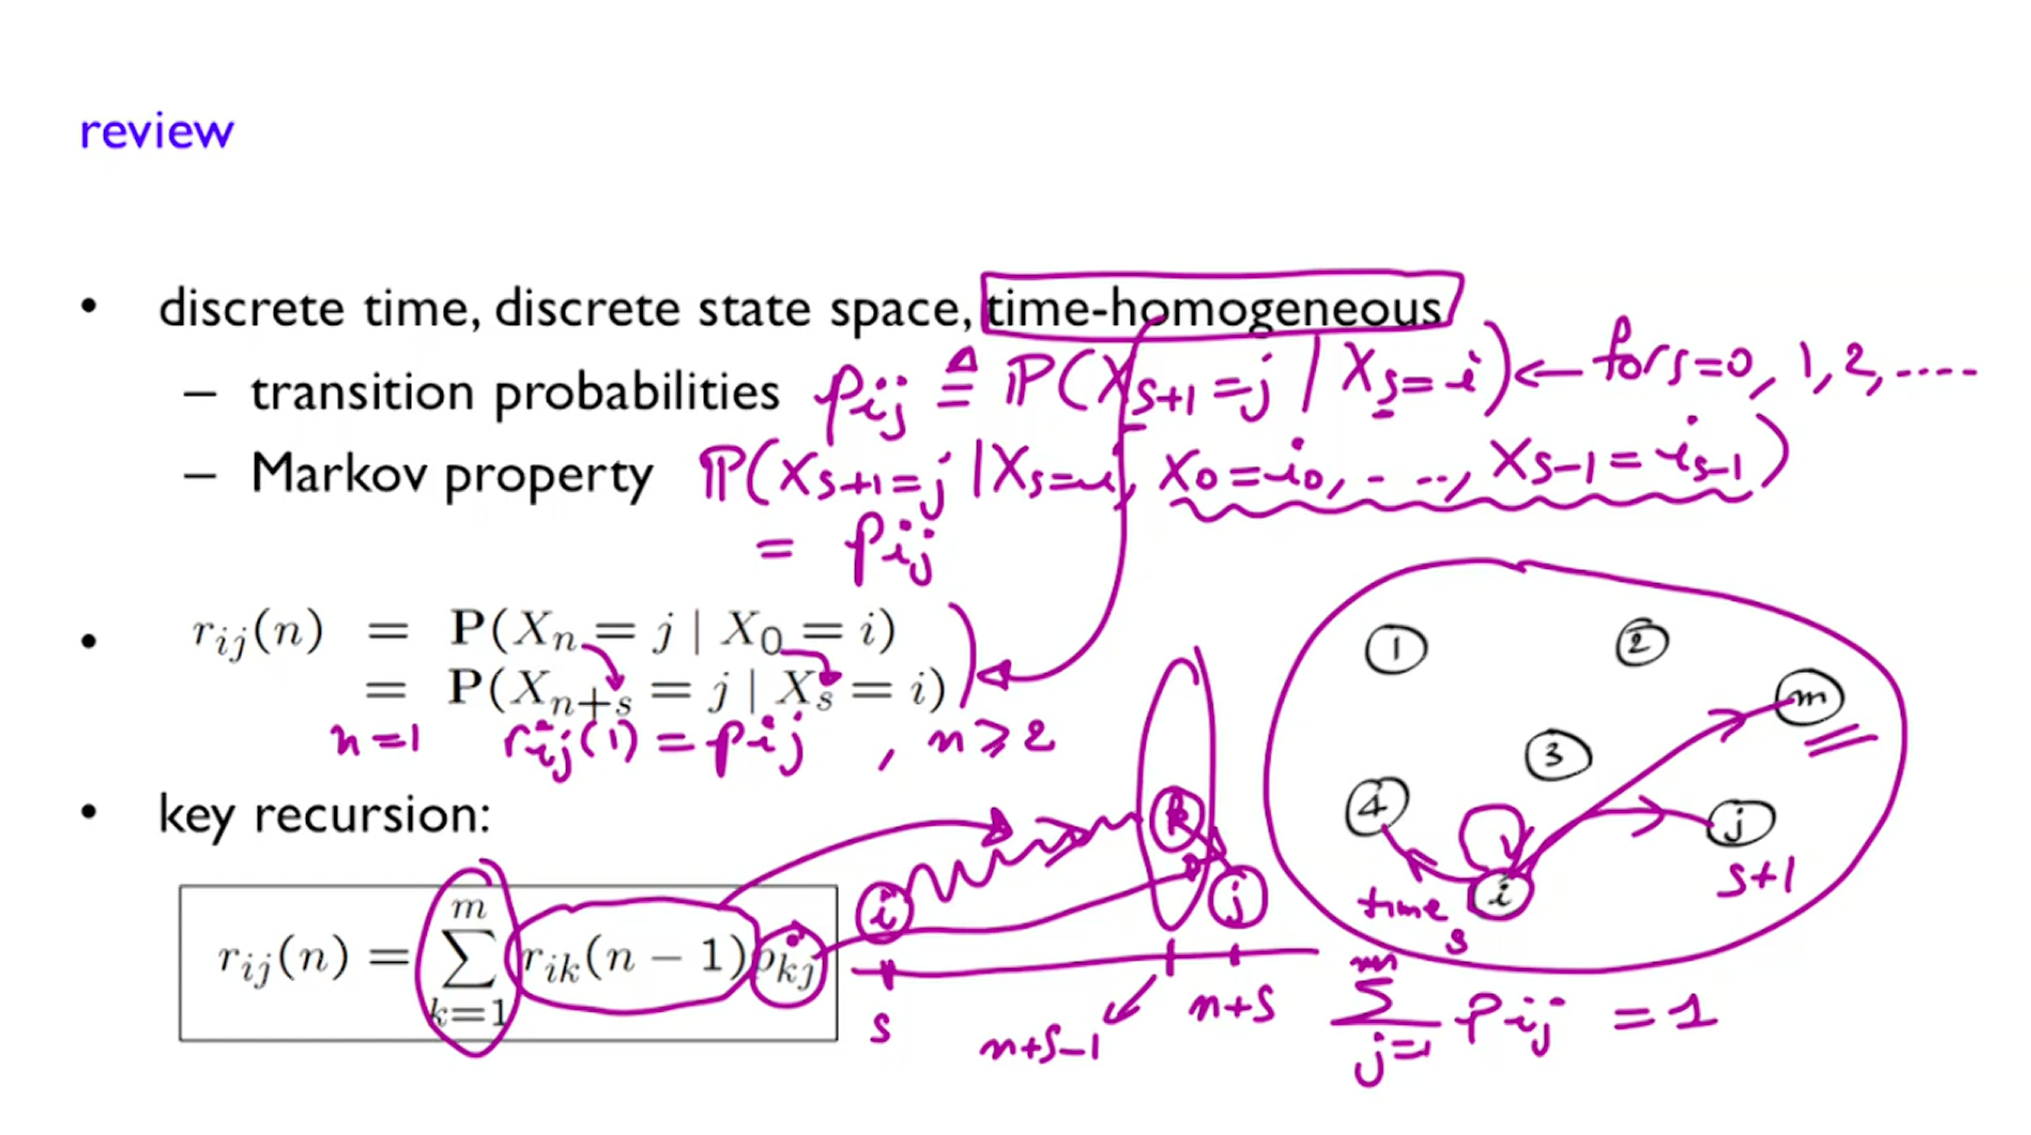 review
• discrete time, discrete state space, time-homogeneous
– transition probabilities p_ij ≜ P(X_{s+1} = j | X_s = i) ← for s = 0, 1, 2, ....
– Markov property P(X_{s+1} = j | X_s = i, X_0 = i_0, - - .., X_{s-1} = i_{s-1})
= p_ij
• r_ij(n) = P(X_n = j | X_0 = i)
= P(X_{n+s} = j | X_s = i)
n = 1 r_ij(1) = p_ij , n ⩾ 2
• key recursion:
r_ij(n) = ∑_{k=1}^{m} r_ik(n − 1)p_kj
i
k
j
s
n+s-1
n+s
1
2
m
3
4
j
s+1
i
time
s
∑_{j=1}^{m} p_ij = 1